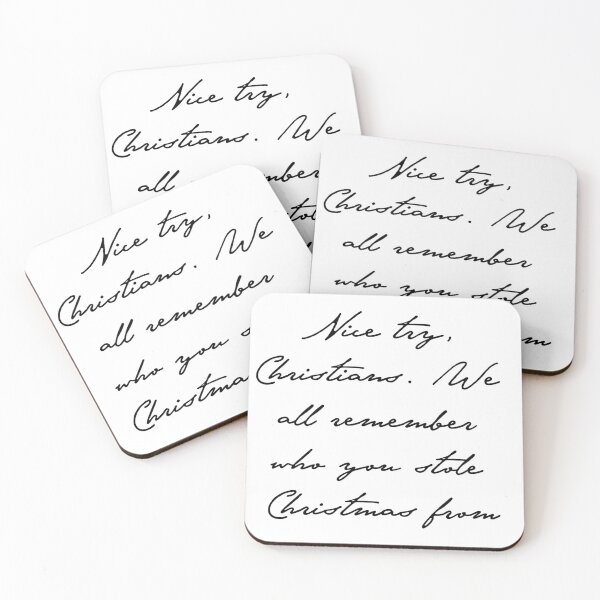 Nice try,
Christians. We
all mber
Nice try,
Christians. We
all remember
who you stole
om
Nice try,
Christians. We
all remember
who you s
Christma
Nice try,
Christians. We
all remember
who you stole
Christmas from